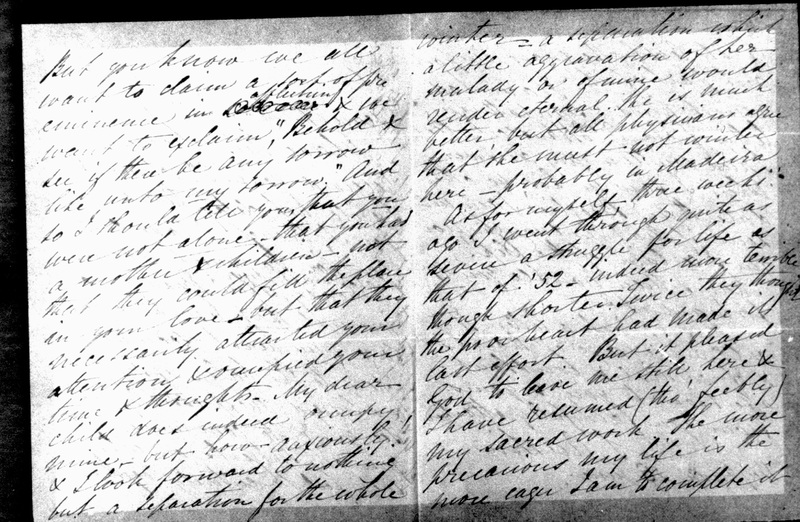 But you know we all
want to claim a sort of pre
eminence in affliction & we
want to exclaim, "Behold &
see if there be any sorrow
like unto my sorrow." And
so I should tell you, that you
were not alone, that you had
a mother & children - not
that they could fill the place
in your love - but that they
necessarily attracted your
attention & occupied your
time & thoughts - My dear
child does indeed occupy
mine - but how - anxiously!
& I look forward to nothing
but a separation for the whole
winter - a separation which
a little aggravation of her
malady or of mine would
render eternal. She is much
better but all physicians agree
that she must not winter
here - probably in Madeira
As for myself three weeks
ago I went through quite as
severe a struggle for life as
that of '52 - indeed more terrible
though shorter. Twice they thought
the poor heart had made its
last effort. But it pleased
God to leave me still here &
I have resumed (tho' feebly)
my sacred work. The more
precarious my life is the
more eager I am to complete it